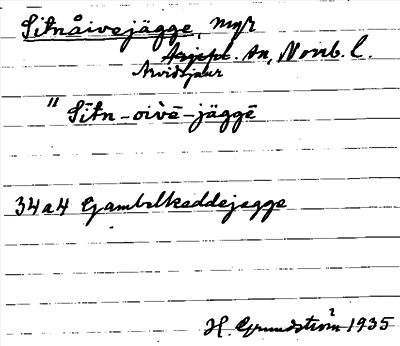 Sitnåivejägge, myr
Arjepl. An, Norrb. l.
Arvidsjaur
" Sītn-oivē-jäggē
34a4 Gambelkaddejagge
H. Grundström 1935